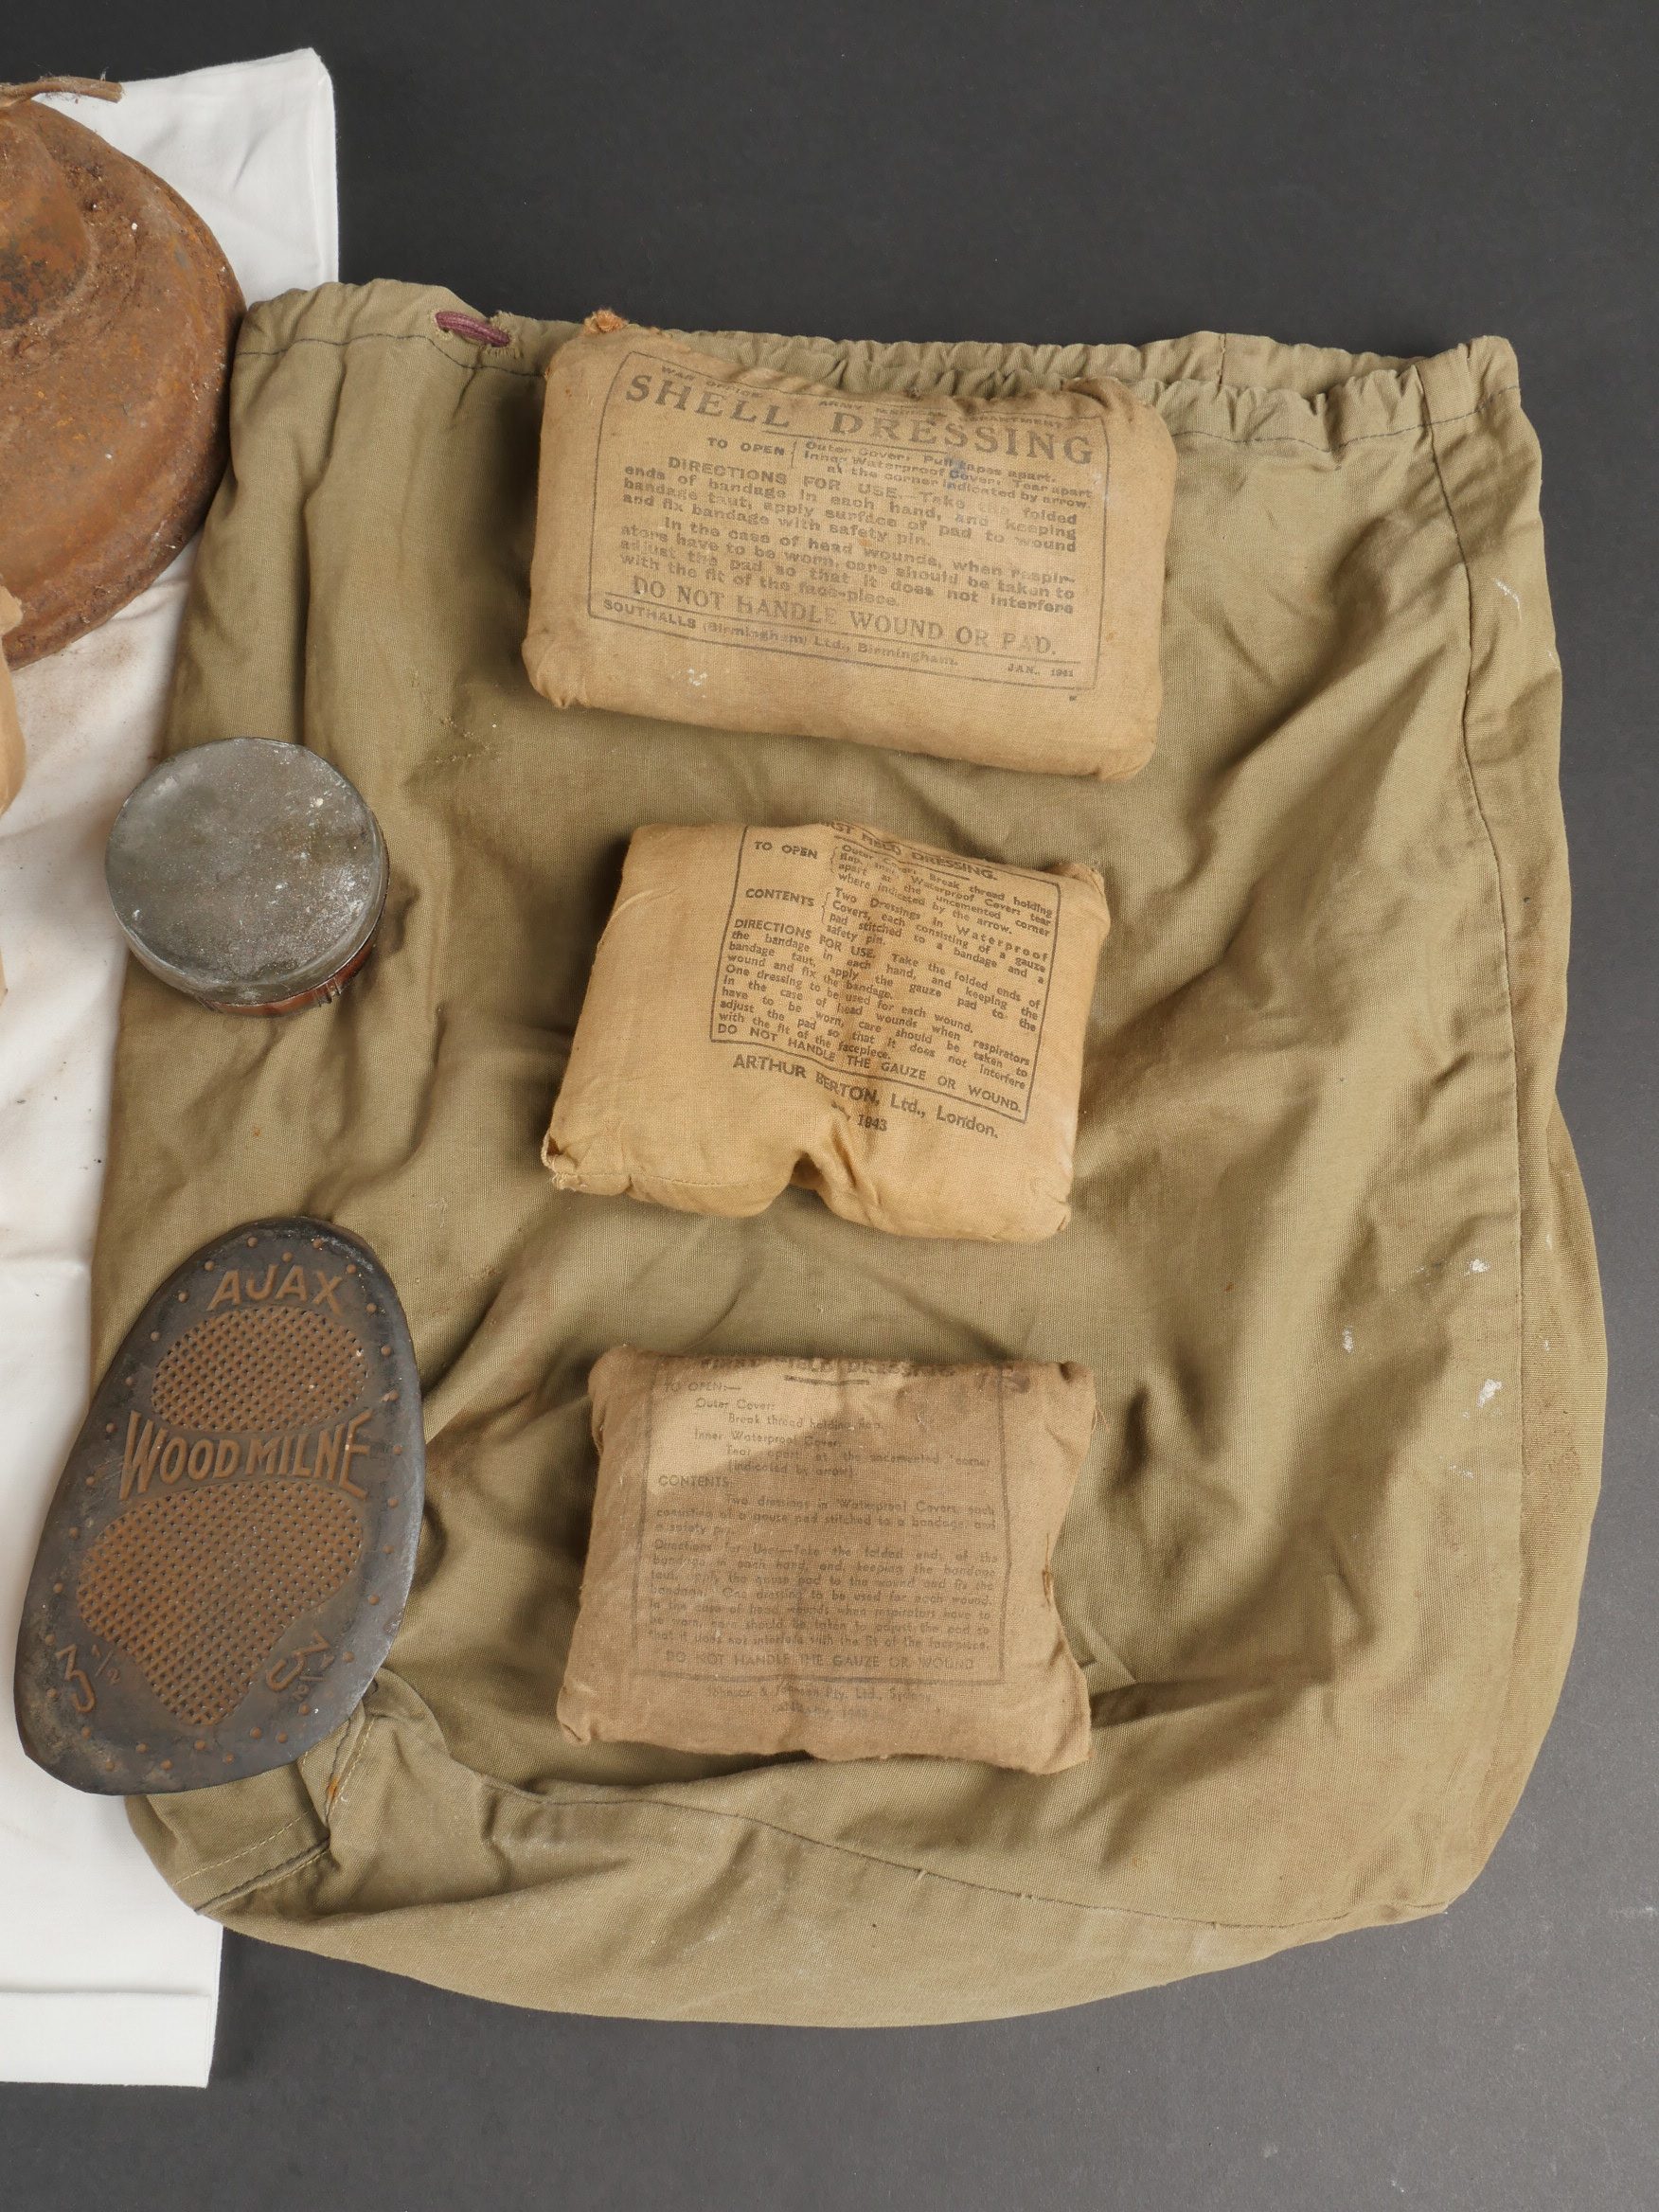 WAR OFFICE ARMY MEDICAL DEPARTMENT
SHELL DRESSING
TO OPEN
Outer Cover: Pull tapes apart.
Inner Waterproof Cover: Tear apart
at the corner indicated by arrow.
DIRECTIONS FOR USE.—Take the folded
ends of bandage in each hand, and keeping
bandage taut, apply surface of pad to wound
and fix bandage with safety pin.
In the case of head wounds, when respir-
ators have to be worn, care should be taken to
adjust the pad so that it does not interfere
with the fit of the face-piece.
DO NOT HANDLE WOUND OR PAD.
SOUTHALLS (Birmingham) Ltd., Birmingham. JAN., 1941
FIELD DRESSING.
TO OPEN
Outer Cover: Break thread holding
flap. Inner Waterproof Cover: tear
apart at the uncemented corner
where indicated by the arrow.
CONTENTS
Two Dressings in Waterproof
Covers, each consisting of a gauze
pad stitched to a bandage and a
safety pin.
DIRECTIONS FOR USE. Take the folded ends of
the bandage in each hand, and keeping the
bandage taut, apply the gauze pad to the
wound and fix the bandage.
One dressing to be used for each wound.
In the case of head wounds when respirators
have to be worn, care should be taken to
adjust the pad so that it does not interfere
with the fit of the facepiece.
DO NOT HANDLE THE GAUZE OR WOUND.
ARTHUR BERTON, Ltd., London.
1943
FIRST FIELD DRESSING
TO OPEN:—
Outer Cover:
Break thread holding flap.
Inner Waterproof Cover:
Tear apart at the uncemented corner
(indicated by arrow)
CONTENTS
Two dressings in Waterproof Covers, each
consisting of a gauze pad stitched to a bandage, and
a safety pin.
Directions for Use:—Take the folded ends of the
bandage in each hand, and keeping the bandage
taut, apply the gauze pad to the wound and fix the
bandage. One dressing to be used for each wound.
In the case of head wounds when respirators have to
be worn, care should be taken to adjust the pad so
that it does not interfere with the fit of the facepiece.
DO NOT HANDLE THE GAUZE OR WOUND
Johnson & Johnson Pty. Ltd., Sydney
AJAX
WOOD MILNE
3 1/2 3 1/2